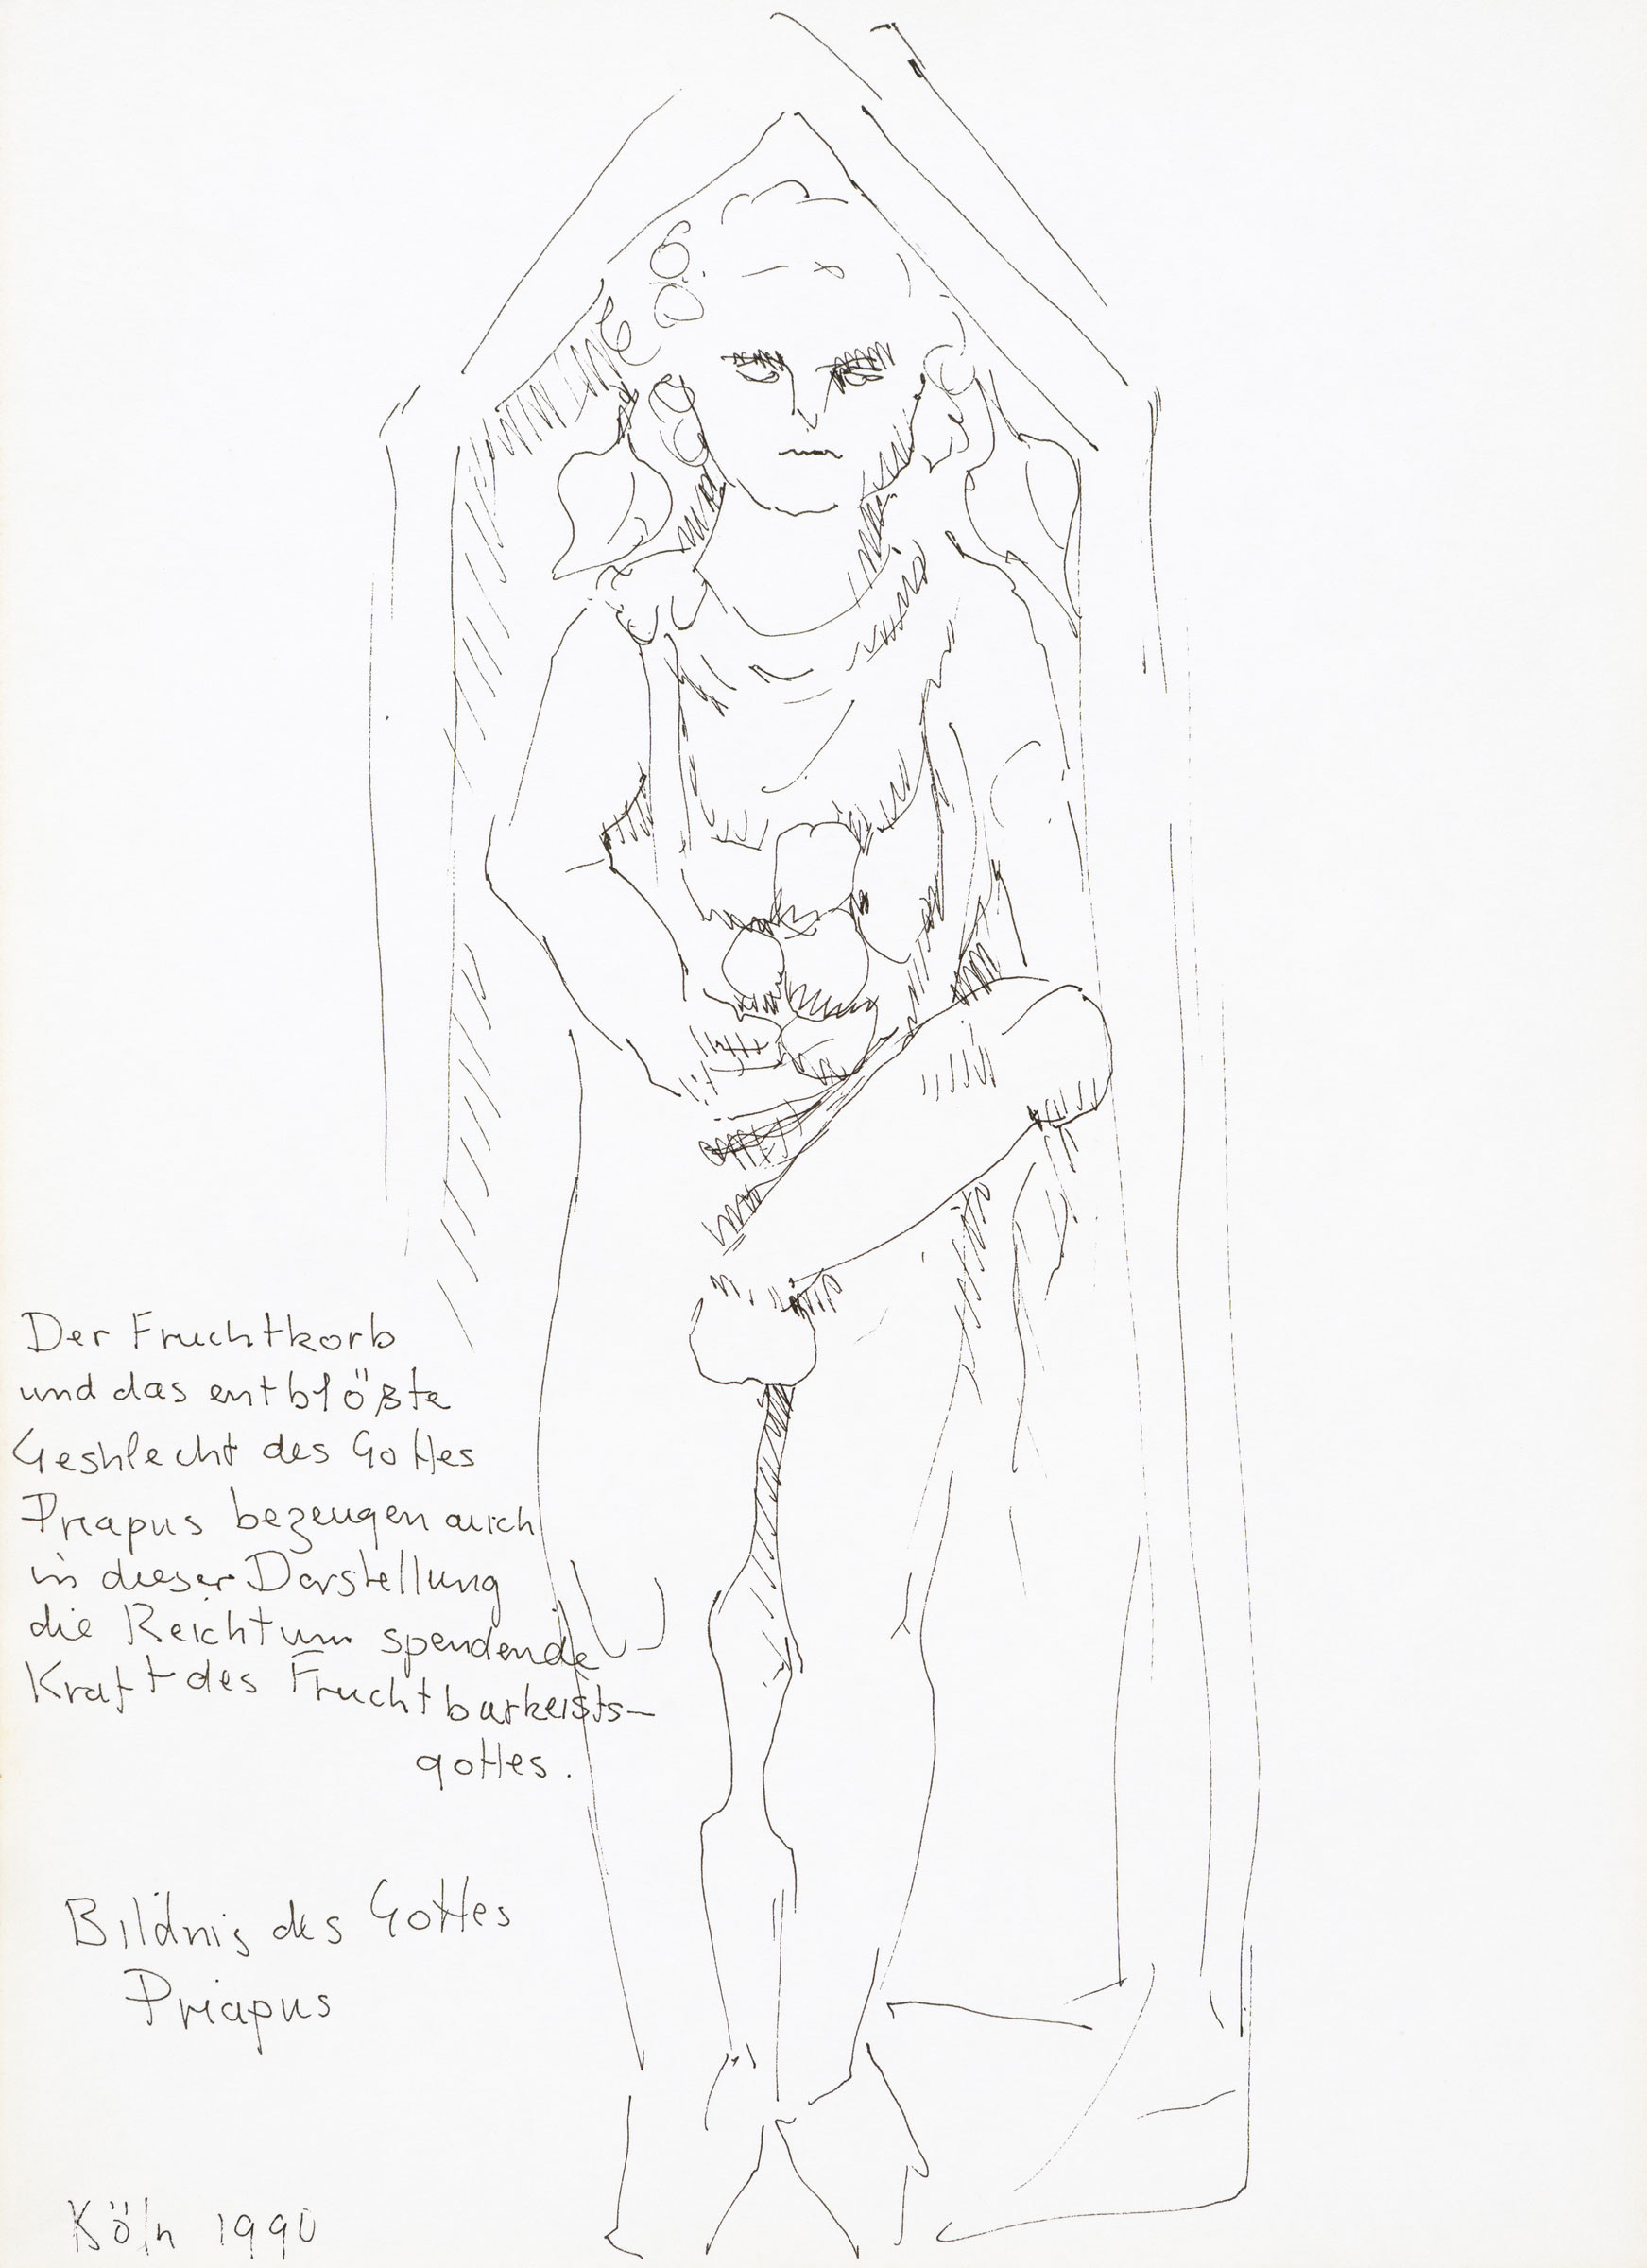 Der Fruchtkorb
und das entblößte
Geshlecht des Gottes
Priapus bezeugen auch
in dieser Darstellung
die Reichtum spendende
Kraft des Fruchtbarkeists-
gottes.
Bildnis des Gottes
Priapus
Köln 1990